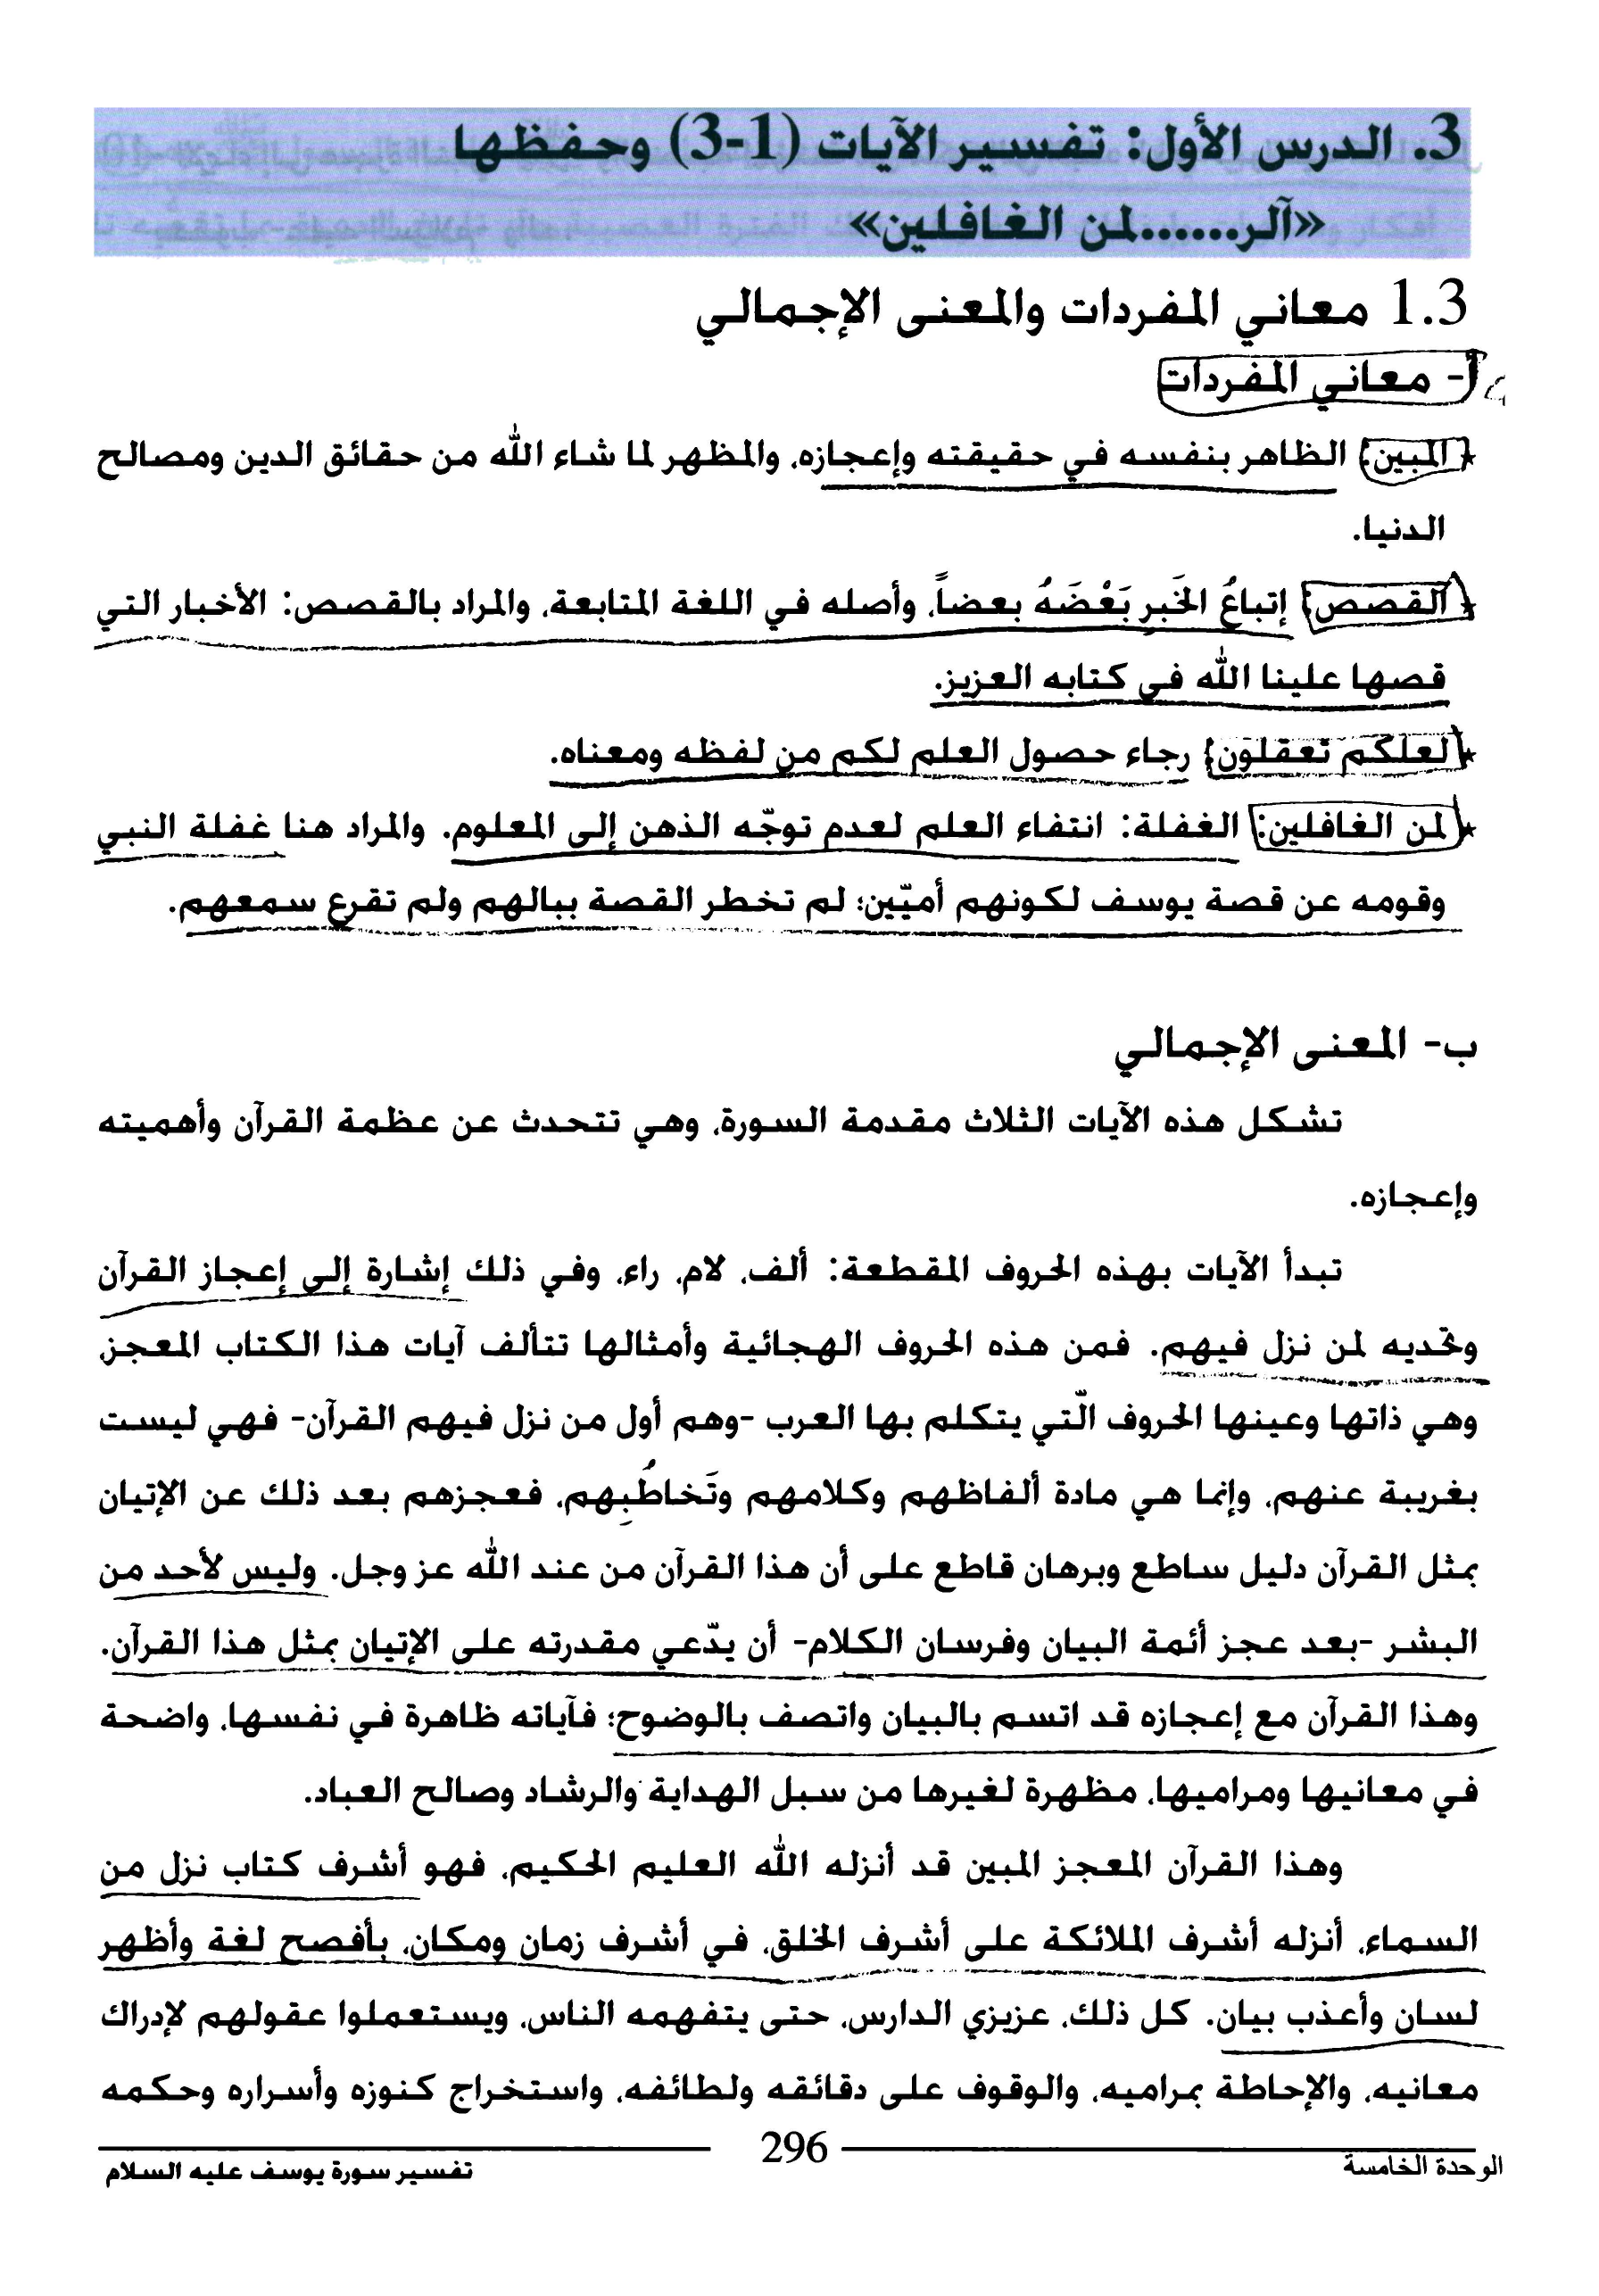 3. الدرس الأول: تفسير الآيات (1-3) وحفظها
«آلر......لمن الغافلين»
1.3 معاني المفردات والمعنى الإجمالي
أ- معاني المفردات
* {المبين} الظاهر بنفسه في حقيقته وإعجازه، والمظهر لما شاء الله من حقائق الدين ومصالح
الدنيا.
* {القصص} إتباعُ الخَبرِ بَعْضَهُ بعضاً، وأصله في اللغة المتابعة، والمراد بالقصص: الأخبار التي
قصها علينا الله في كتابه العزيز.
* {لعلكم تعقلون} رجاء حصول العلم لكم من لفظه ومعناه.
* {لمن الغافلين: الغفلة: انتفاء العلم لعدم توجّه الذهن إلى المعلوم. والمراد هنا غفلة النبي
وقومه عن قصة يوسف لكونهم أميّين؛ لم تخطر القصة ببالهم ولم تقرع سمعهم.
ب- المعنى الإجمالي
تشكل هذه الآيات الثلاث مقدمة السورة، وهي تتحدث عن عظمة القرآن وأهميته
وإعجازه.
تبدأ الآيات بهذه الحروف المقطعة: ألف، لام، راء، وفي ذلك إشارة إلى إعجاز القرآن
وتحديه لمن نزل فيهم. فمن هذه الحروف الهجائية وأمثالها تتألف آيات هذا الكتاب المعجز،
وهي ذاتها وعينها الحروف الّتي يتكلم بها العرب -وهم أول من نزل فيهم القرآن- فهي ليست
بغريبة عنهم، وإنما هي مادة ألفاظهم وكلامهم وتَخاطُبِهم، فعجزهم بعد ذلك عن الإتيان
بمثل القرآن دليل ساطع وبرهان قاطع على أن هذا القرآن من عند الله عز وجل. وليس لأحد من
البشر -بعد عجز أئمة البيان وفرسان الكلام- أن يدّعي مقدرته على الإتيان بمثل هذا القرآن.
وهذا القرآن مع إعجازه قد اتسم بالبيان واتصف بالوضوح؛ فآياته ظاهرة في نفسها، واضحة
في معانيها ومراميها، مظهرة لغيرها من سبل الهداية والرشاد وصالح العباد.
وهذا القرآن المعجز المبين قد أنزله الله العليم الحكيم، فهو أشرف كتاب نزل من
السماء، أنزله أشرف الملائكة على أشرف الخلق، في أشرف زمان ومكان، بأفصح لغة وأظهر
لسان وأعذب بيان. كل ذلك، عزيزي الدارس، حتى يتفهمه الناس، ويستعملوا عقولهم لإدراك
معانيه، والإحاطة بمراميه، والوقوف على دقائقه ولطائفه، واستخراج كنوزه وأسراره وحكمه
الوحدة الخامسة 296 تفسير سورة يوسف عليه السلام